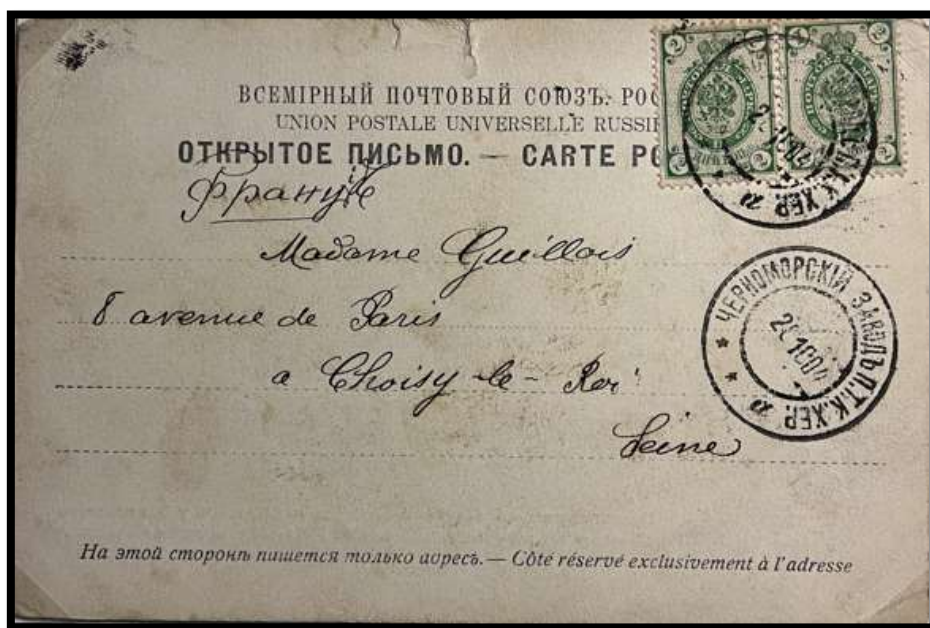 ВСЕМІРНЫЙ ПОЧТОВЫЙ СОЮЗЪ. РОС
UNION POSTALE UNIVERSELLE RUSSIE
ОТКРЫТОЕ ПИСЬМО. — CARTE PO
2 2
2 2
Madame Guillois
8 avenue de Paris
a Choisy-le-Roi
Seine
ЧЕРНОМОРСКІЙ ЗАВОДЪ П.Т.К. ХЕР.
На этой сторонѣ пишется только адресъ. — Côté réservé exclusivement à l'adresse